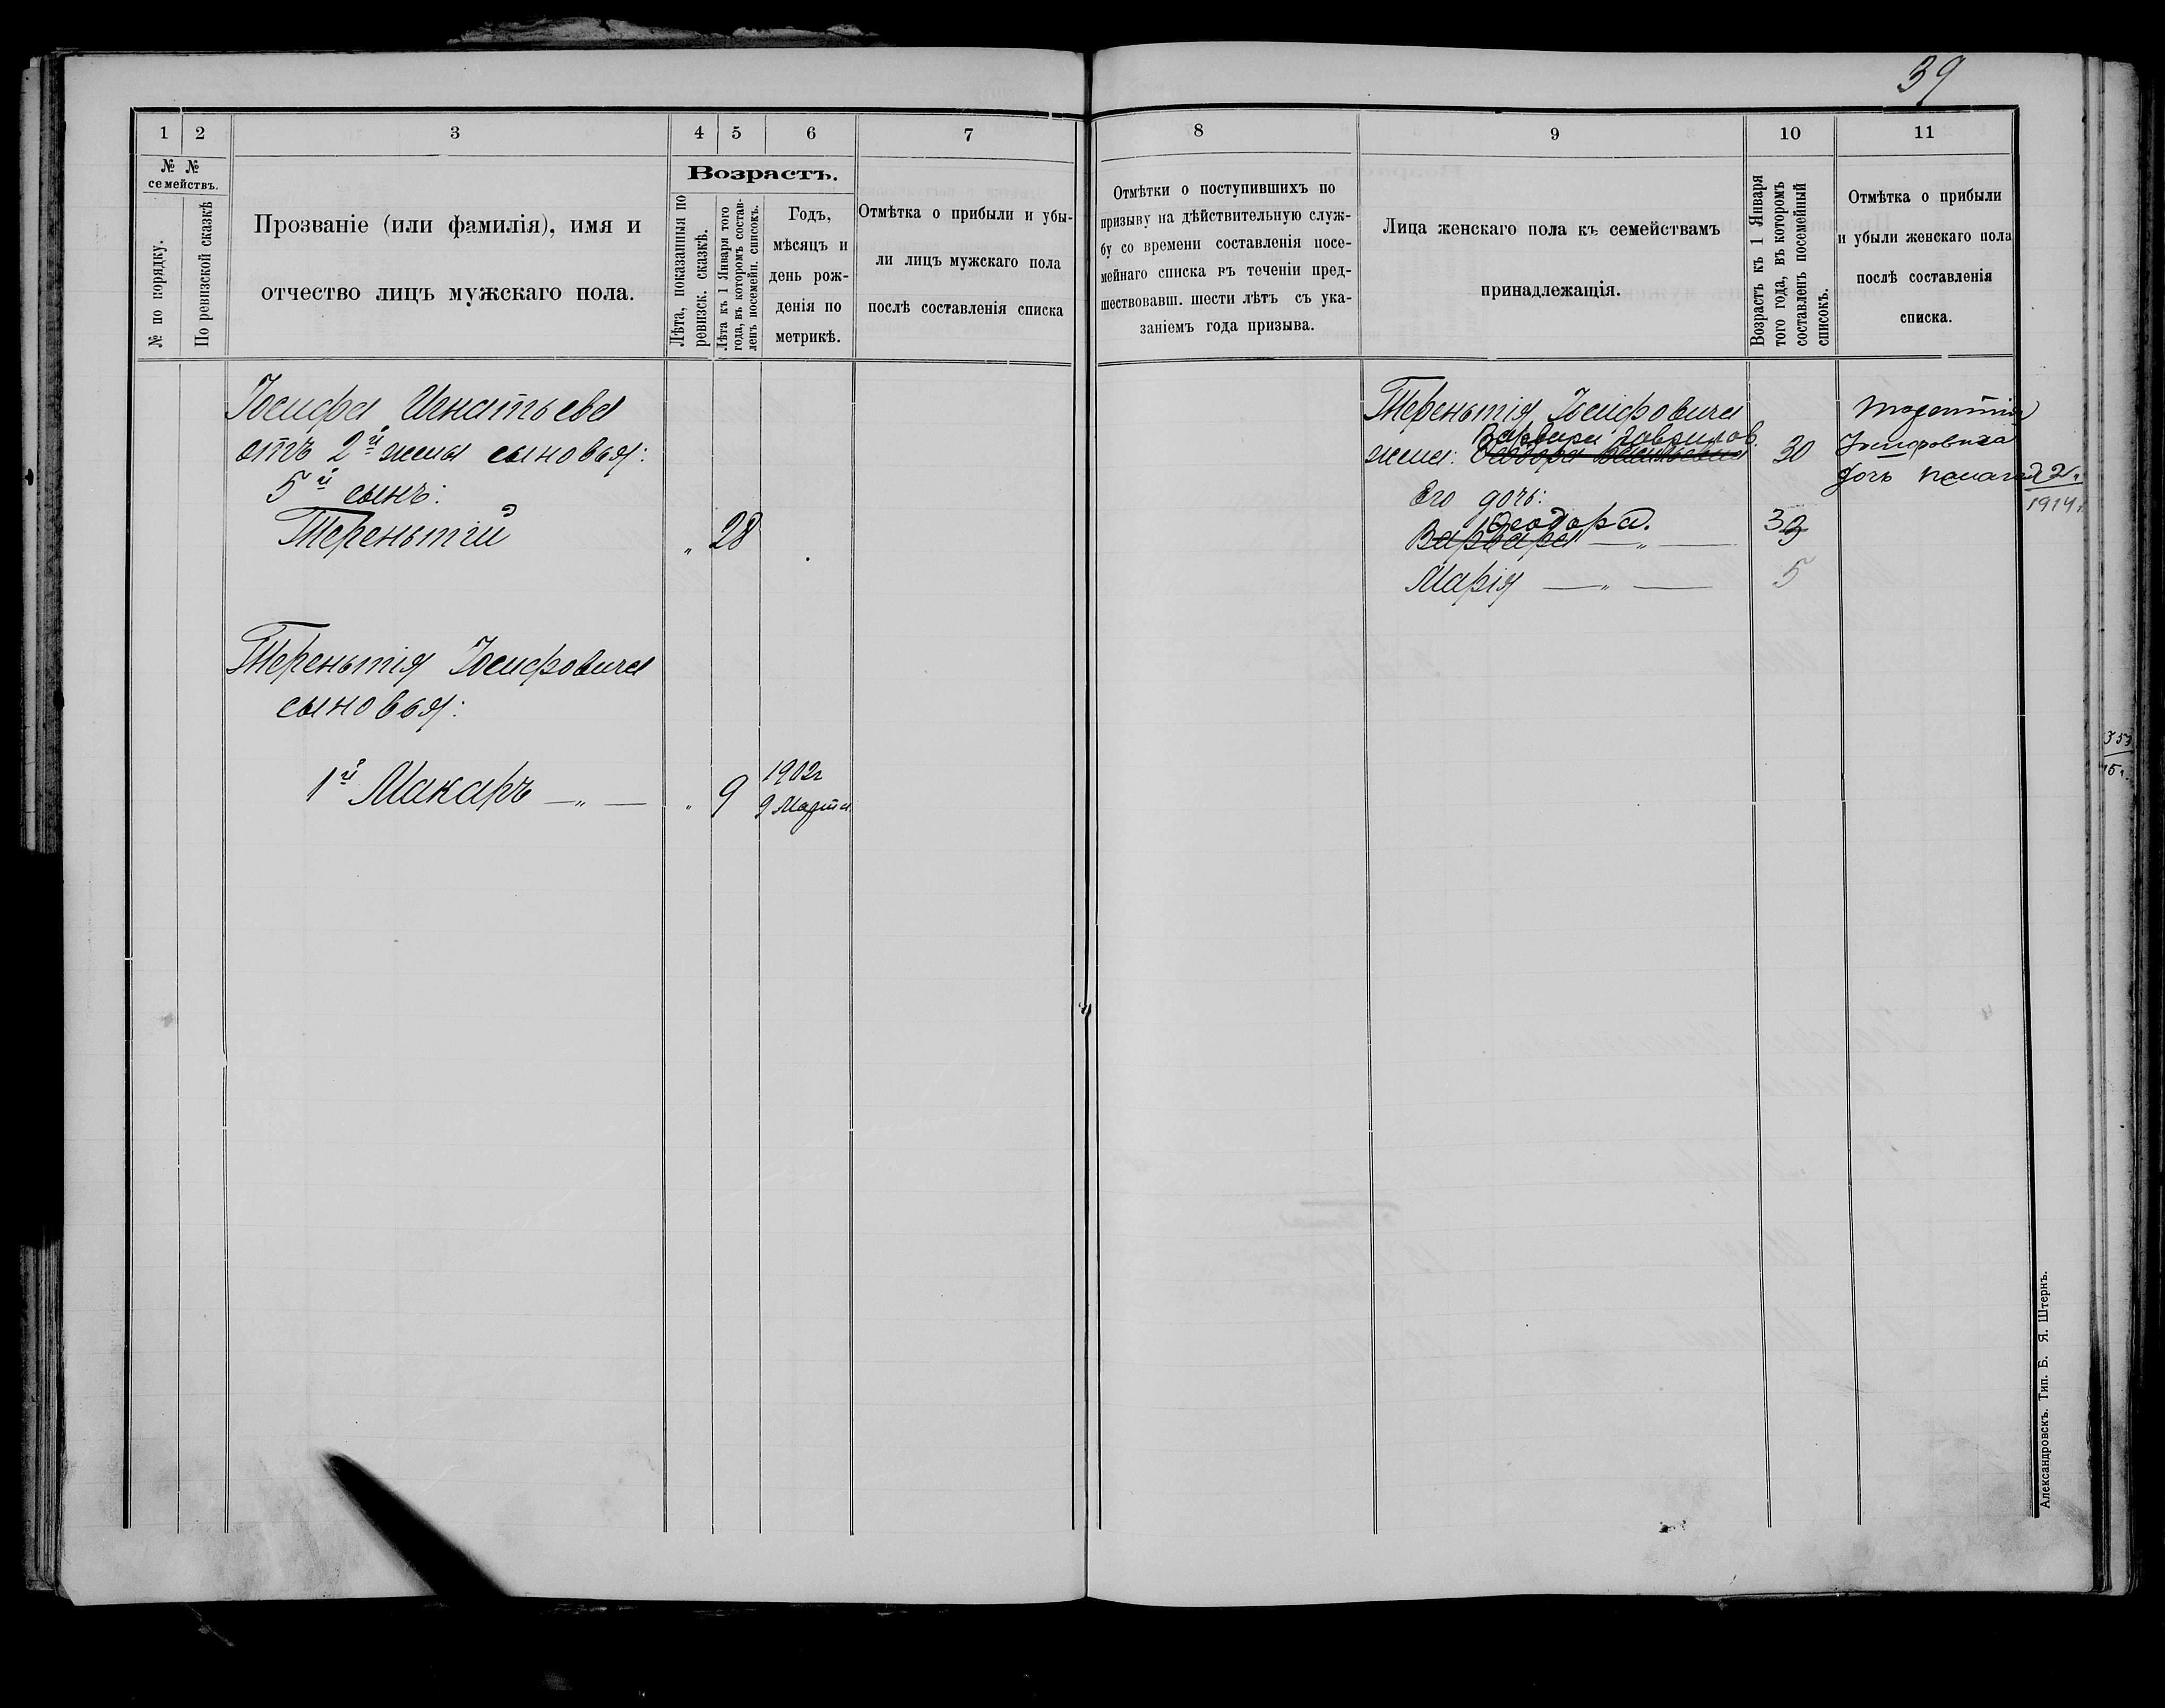 39
1
2
3
4
5
6
7
№ №
семействъ.
№ по порядку.
По ревизской сказкѣ
Прозваніе (или фамилія), имя и
отчество лицъ мужскаго пола.
Возрастъ.
Лѣта, показанныя по
ревизск. сказкѣ.
Лѣта къ 1 Января того
года, въ которомъ состав-
ленъ посемейн. списокъ.
Годъ,
мѣсяцъ и
день рож-
денія по
метрикѣ.
Отмѣтка о прибыли и убы-
ли лицъ мужскаго пола
послѣ составленія списка
Іосифа Игнатьева
отъ 2й жены сыновья:
5й сынъ:
Терентьій
" 28
Терентьія Іосифовича
сыновья:
1й Макаръ — " — " 9
1902г
9 Марта
8
9
10
11
Отмѣтки о поступившихъ по
призыву на дѣйствительную служ-
бу со времени составленія посе-
мейнаго списка въ теченіи пред-
шествовавш. шести лѣтъ съ ука-
заніемъ года призыва.
Лица женскаго пола къ семействамъ
принадлежащія.
Возрастъ къ 1 Января
того года, въ которомъ
составленъ посемейный
списокъ.
Отмѣтка о прибыли
и убыли женскаго пола
послѣ составленія
списка.
Терентьія Іосифовича
Варвара Гаврилов.
жена: Феодора Васильевна 30
Его дочь:
Феодора.
Варвара — " — 3
Марія — " — 5
Іосифовича
дочь
1914г
353
15г.
Александровскъ. Тип. Б. Я. Штернъ.